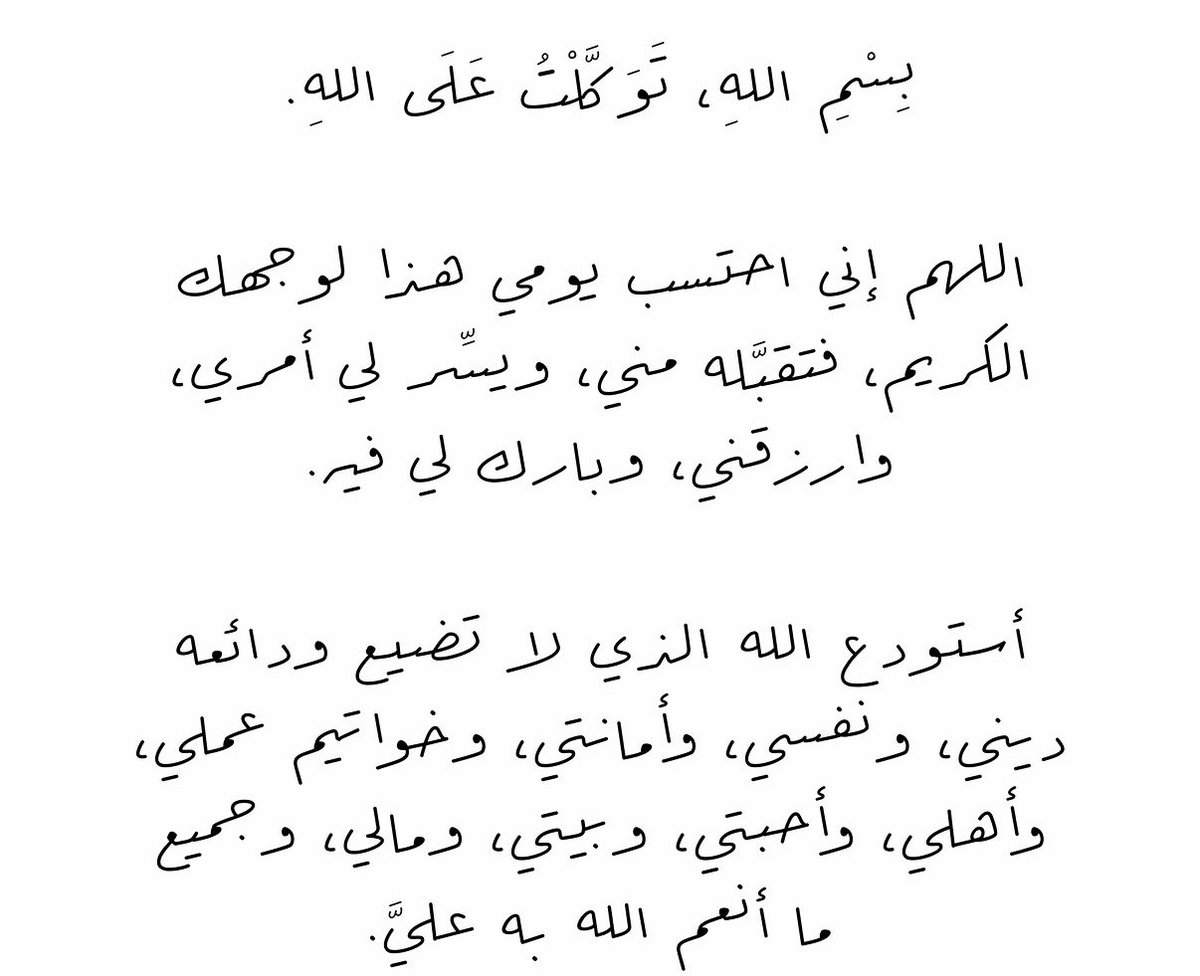 بِسْمِ اللهِ، تَوَكَّلْتُ عَلَى اللهِ.
اللهم إني احتسب يومي هذا لوجهك
الكريم، فتقبَّله مني، ويسِّر لي أمري،
وارزقني، وبارك لي فيه.
أستودع الله الذي لا تضيع ودائعه
ديني، ونفسي، وأمانتي، وخواتيم عملي،
وأهلي، وأحبتي، وبيتي، ومالي، وجميع
ما أنعم الله به عليَّ.